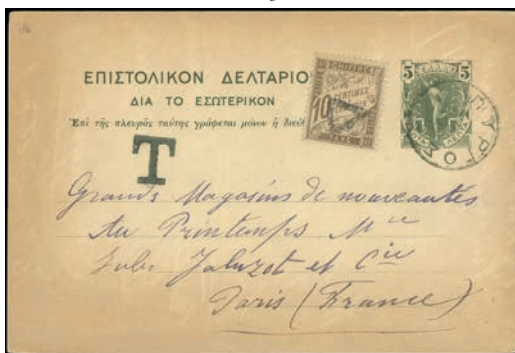 5 ΕΛΛΑΣ 5
ΕΠΙΣΤΟΛΙΚΟΝ ΔΕΛΤΑΡΙΟ
ΔΙΑ ΤΟ ΕΣΩΤΕΡΙΚΟΝ
Ἐπὶ τῆς πλευρᾶς ταύτης γράφεται μόνον ἡ διεύθ
CHIFFRE
10 CENTIMES
TAXE
ΛΕΠΤΑ
ΠΥΡΓΟΣ
T
Grands Magasins de nouveautés
Au Printemps Mce
Jules Jaluzot et Cie
Paris (France)